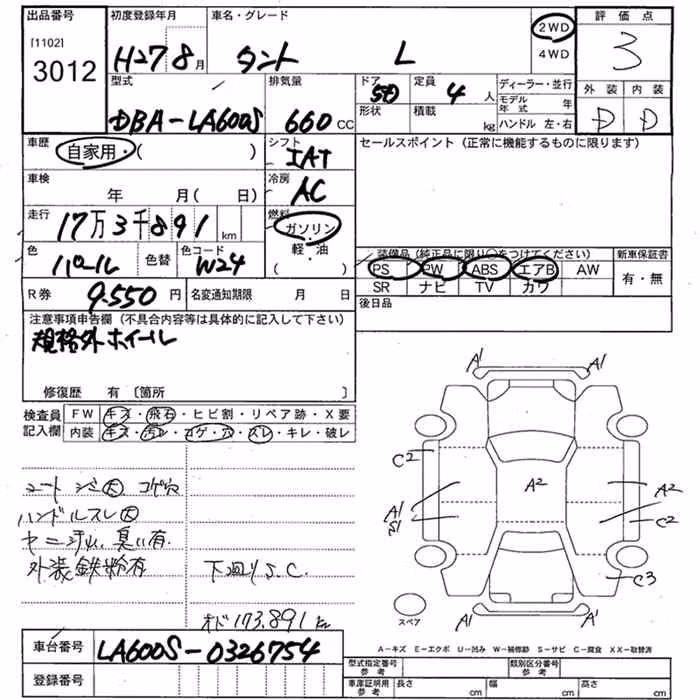 出品番号 初度登録年月 車名・グレード 2WD 4WD 評価点
[1102] 3012 H27 8月 タント L 3
型式 排気量 ドア 定員 ディーラー・並行 外装 内装
DBA-LA600S 660CC 5D 4人 モデル年式 年 D D
形状 積載 kg ハンドル 左・右
車歴 自家用・( ) シフト IAT セールスポイント(正常に機能するものに限ります)
車検 年 月( 日) 冷房 AC
走行 17万3千891km 燃料 ガソリン・軽・油( )
色 パール 色替 色コード W24
装備品(純正品に限り○をつけてください) 新車保証書
PS PW ABS エアB AW 有・無
SR ナビ TV カワ
R券 9.550円 名変通知期限 月 日 後日品
注意事項申告欄(不具合内容等は具体的に記入して下さい)
規格外ホイール
修復歴 有〔箇所 〕
検査員 FW キズ・飛石・ヒビ割・リペア跡・X要
記入欄 内装 キズ・汚レ・コゲ・穴・スレ・キレ・破レ
シートシミ大 コゲ穴
ハンドルスレ大
ヤニ汚れ、臭い有
外装鉄粉有 下回りS.C.
オド173.891km
A1 A1
C2
A2 A2
A1 S1 C2
C3
A1 A1
スペア
A-キズ E-エクボ U-凹み W-補修跡 S-サビ C-腐食 XX-取替済
車台番号 LA600S-0326754
登録番号
型式指定番号 参考 類別区分番号 参考
車庫証明用 参考 長さ cm 幅 cm 高さ cm